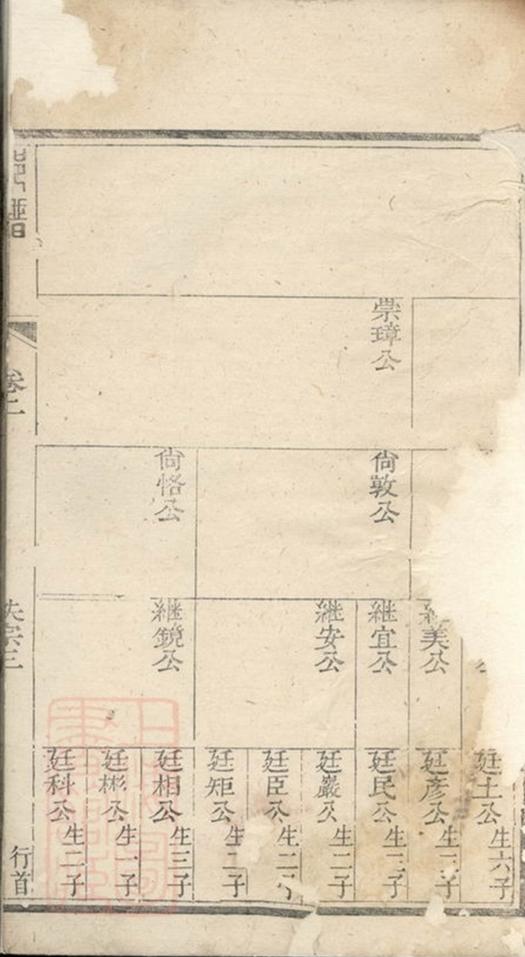 崇璋公
尙敦公
尙恪公
美公
繼宜公
繼安公
繼鏡公
廷士公生六子
廷彥公生三子
廷民公生三子
廷嚴公生二子
廷臣公生二子
廷矩公生二子
廷相公生三子
廷彬公生一子
廷科公生二子
譜
卷二
宗三
行首